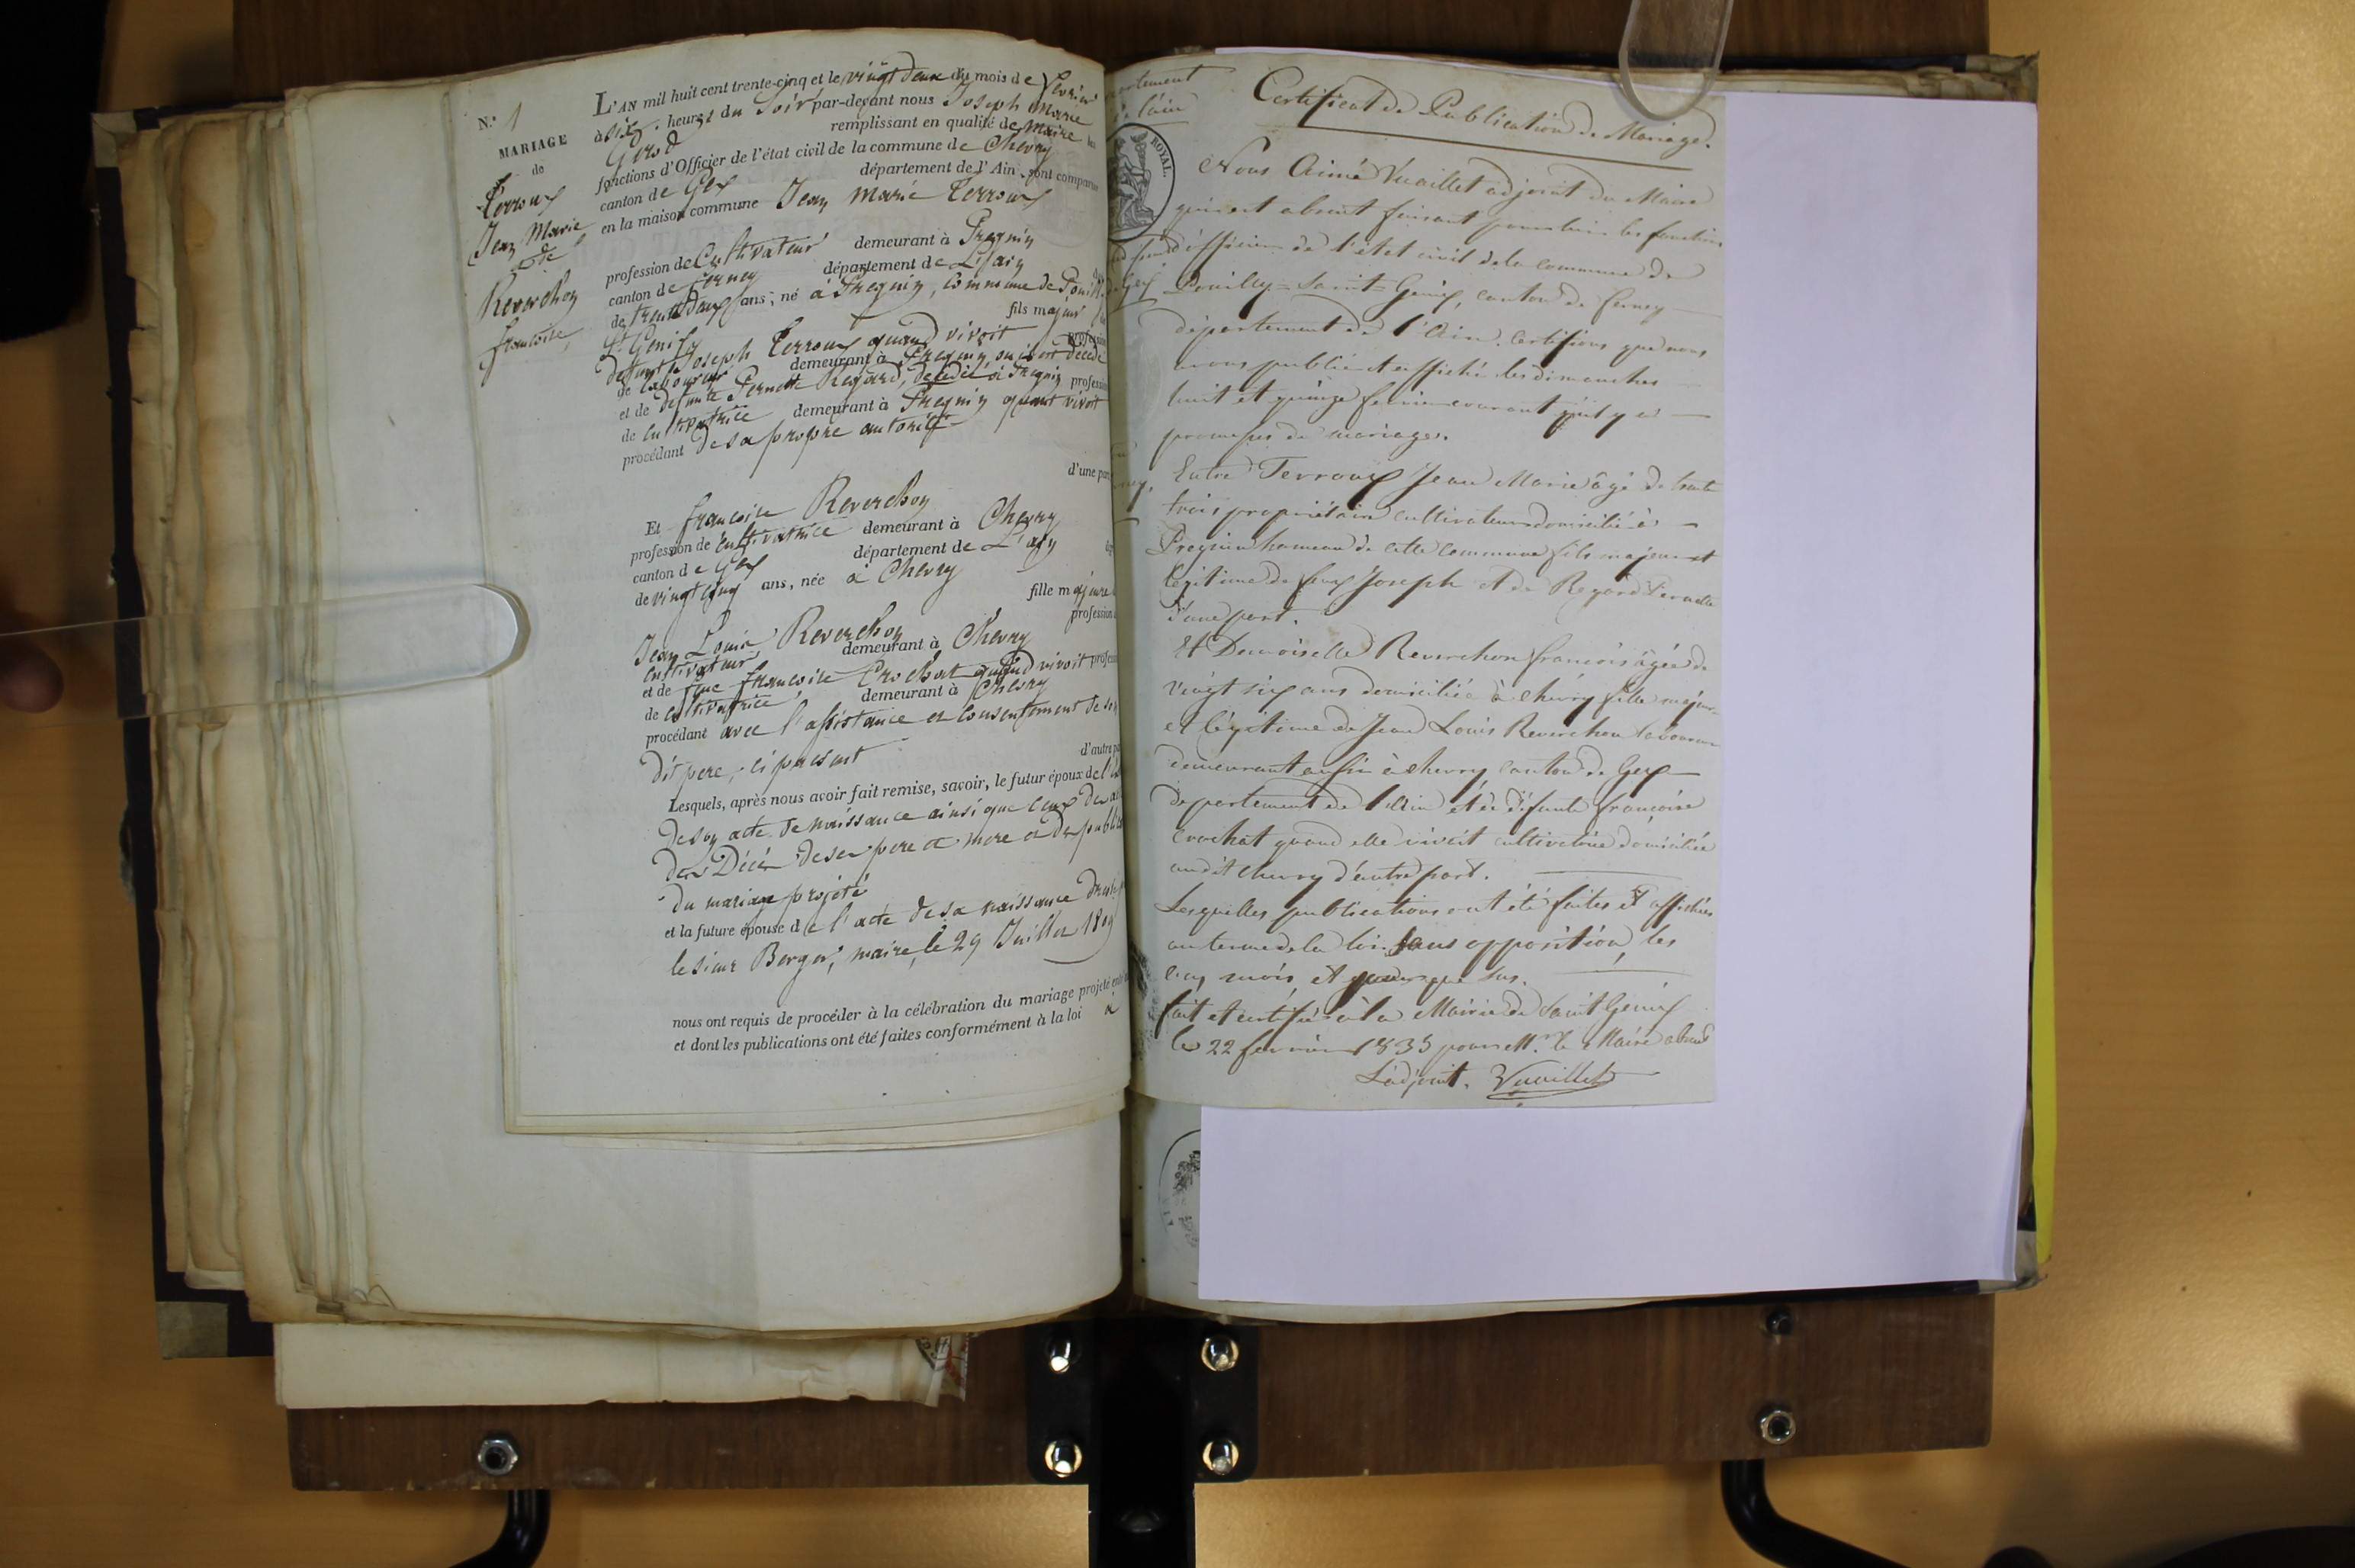 N.° 1
MARIAGE
de
Terroux
Jean Marie
et de
Reverchon
francoise
L'AN mil huit cent trente-cinq et le vingt deux du mois de fevrier
à six heures du Soir par-devant nous Joseph Marie
Girod remplissant en qualité de Maire les
fonctions d'Officier de l'état civil de la commune de Chevry
canton de Gex département de l'Ain, sont comparus
en la maison commune Jean Marie Terroux
profession de Cultivateur demeurant à Pregnin
canton de ferney département de L'ain
de trente Deux ans, né à Pregnin, commune de Pouilly
St. Genix fils majeur
defunt Joseph Terroux quand vivoit profession
de laboureur demeurant à Pregnin ou il est décédé
et de defunte Pernette Regard, décédée à Pregnin profession
de cultivatrice demeurant à Pregnin quant vivoit
procédant de sa propre autorité
d'une part
Et francoise Reverchon
profession de cultivatrice demeurant à Chevry
canton de Gex département de L'ain
de vingt cinq ans, née à Chevry
fille majeure
Jean Louis Reverchon profession
cultivateur demeurant à Chevry
et de feue francoise Crochat quand vivoit profession
de cultivatrice demeurant à Chevry
procédant avec l'assistance et consentement de son
dit pere, ci présent
d'autre part
Lesquels, après nous avoir fait remise, savoir, le futur époux de
de son acte de naissance ainsi que ceux des
des Décès de ses pere et mere et des
du mariage projeté
et la future épouse de l'acte de sa naissance
le sieur Berger, maire, le 29 Juillet 1809
nous ont requis de procéder à la célébration du mariage projeté
et dont les publications ont été faites conformément à la loi
ROYAL.
Certificat de Publication de Mariage.
Nous Aimé Vuaillet adjoint du Maire
qui est absent faisant pour lui les fonctions
d'officier de l'état civil de la commune de
Pouilly-Saint-Genix, canton de ferney
département de l'Ain. Certifions que nous
avons publié et affiché les dimanches
huit et quinze fevrier courant qu'il y a
promesses de mariage.
Entre Terroux Jean Marie âgé de trente
trois propriétaire cultivateur domicilié à
Pregnin hameau de cette commune fils majeur et
légitime de feux Joseph et de Regard Pernette
d'une part.
Et Demoiselle Reverchon francois âgée de
vingt six ans domiciliée à chevry fille majeure
et légitime de Jean Louis Reverchon laboureur
demeurant aussi à chevry, canton de Gex
departement de l'Ain et de défunte françoise
Crochat quand elle vivait cultivatrice domiciliée
audit chevry d'autre part.
Lesquelles publications ont été faites et affichées
au terme de la loi sans opposition, les
an, mois, et jours que sus.
fait et certifié à la Mairie de Saint Genix
le 22 fevrier 1835 pour M.r le Maire absent
L'adjoint. Vuaillet